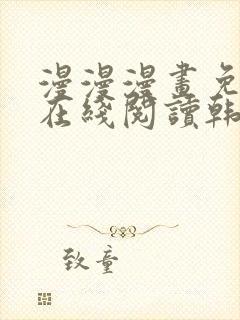 漫漫漫畫免
在綫閱讀韩
致童